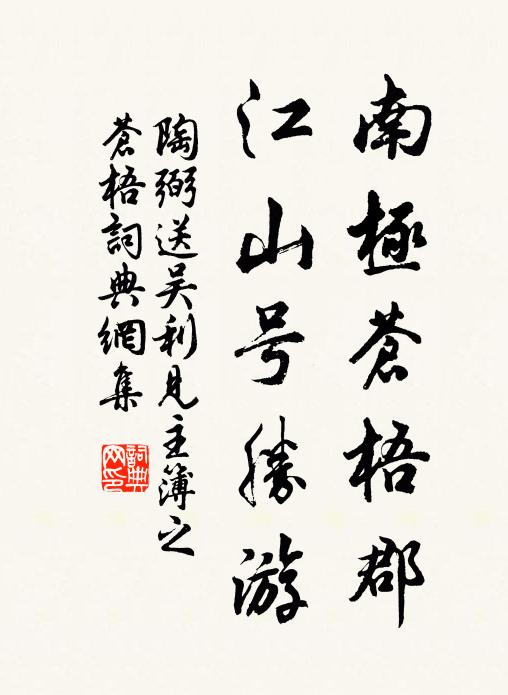 南極蒼梧郡
江山号勝游
陶弼送吴利見主簿之
蒼梧詞典網集
詞典
网印